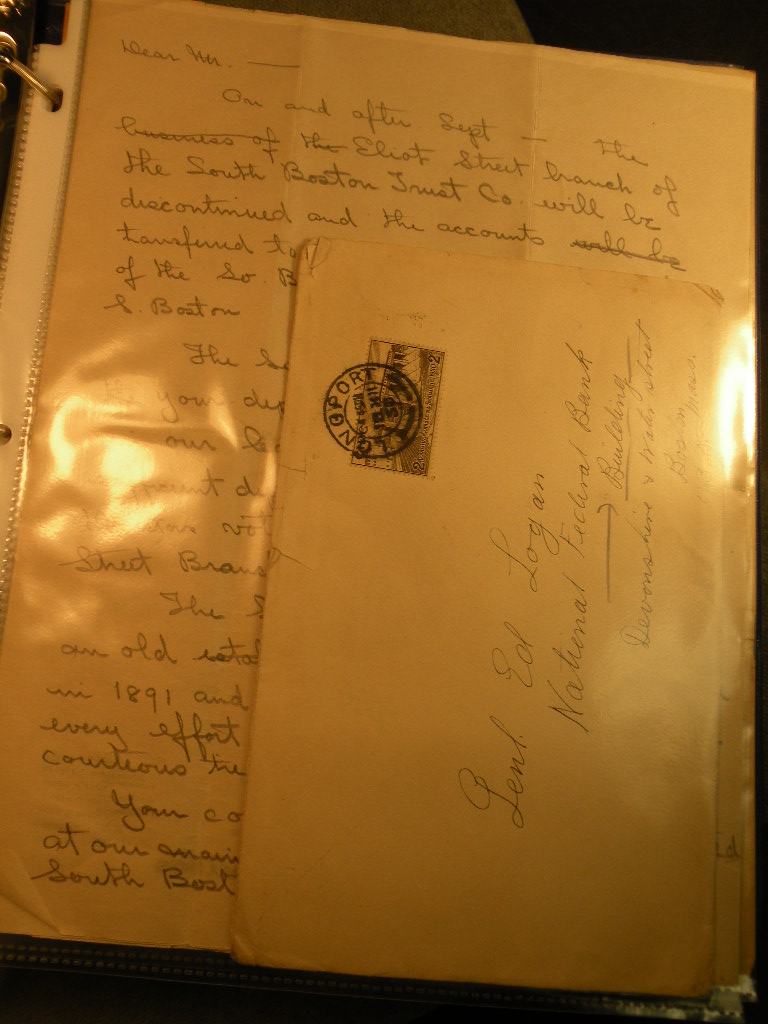 Dear Mr. —
On and after Sept — the
business of the Eliot Street branch of
the South Boston Trust Co. will be
discontinued and the accounts will be
transferred to
of the So. B
S. Boston
The
your dep
our
Street Bran
The S
an old esta
in 1891 and
every effort
courteous tre
Your co
at our main
South Bost
LONGPORT
Genl. Ed Logan
National Federal Bank
Building
Devonshire & Water Street
Boston
Mass.